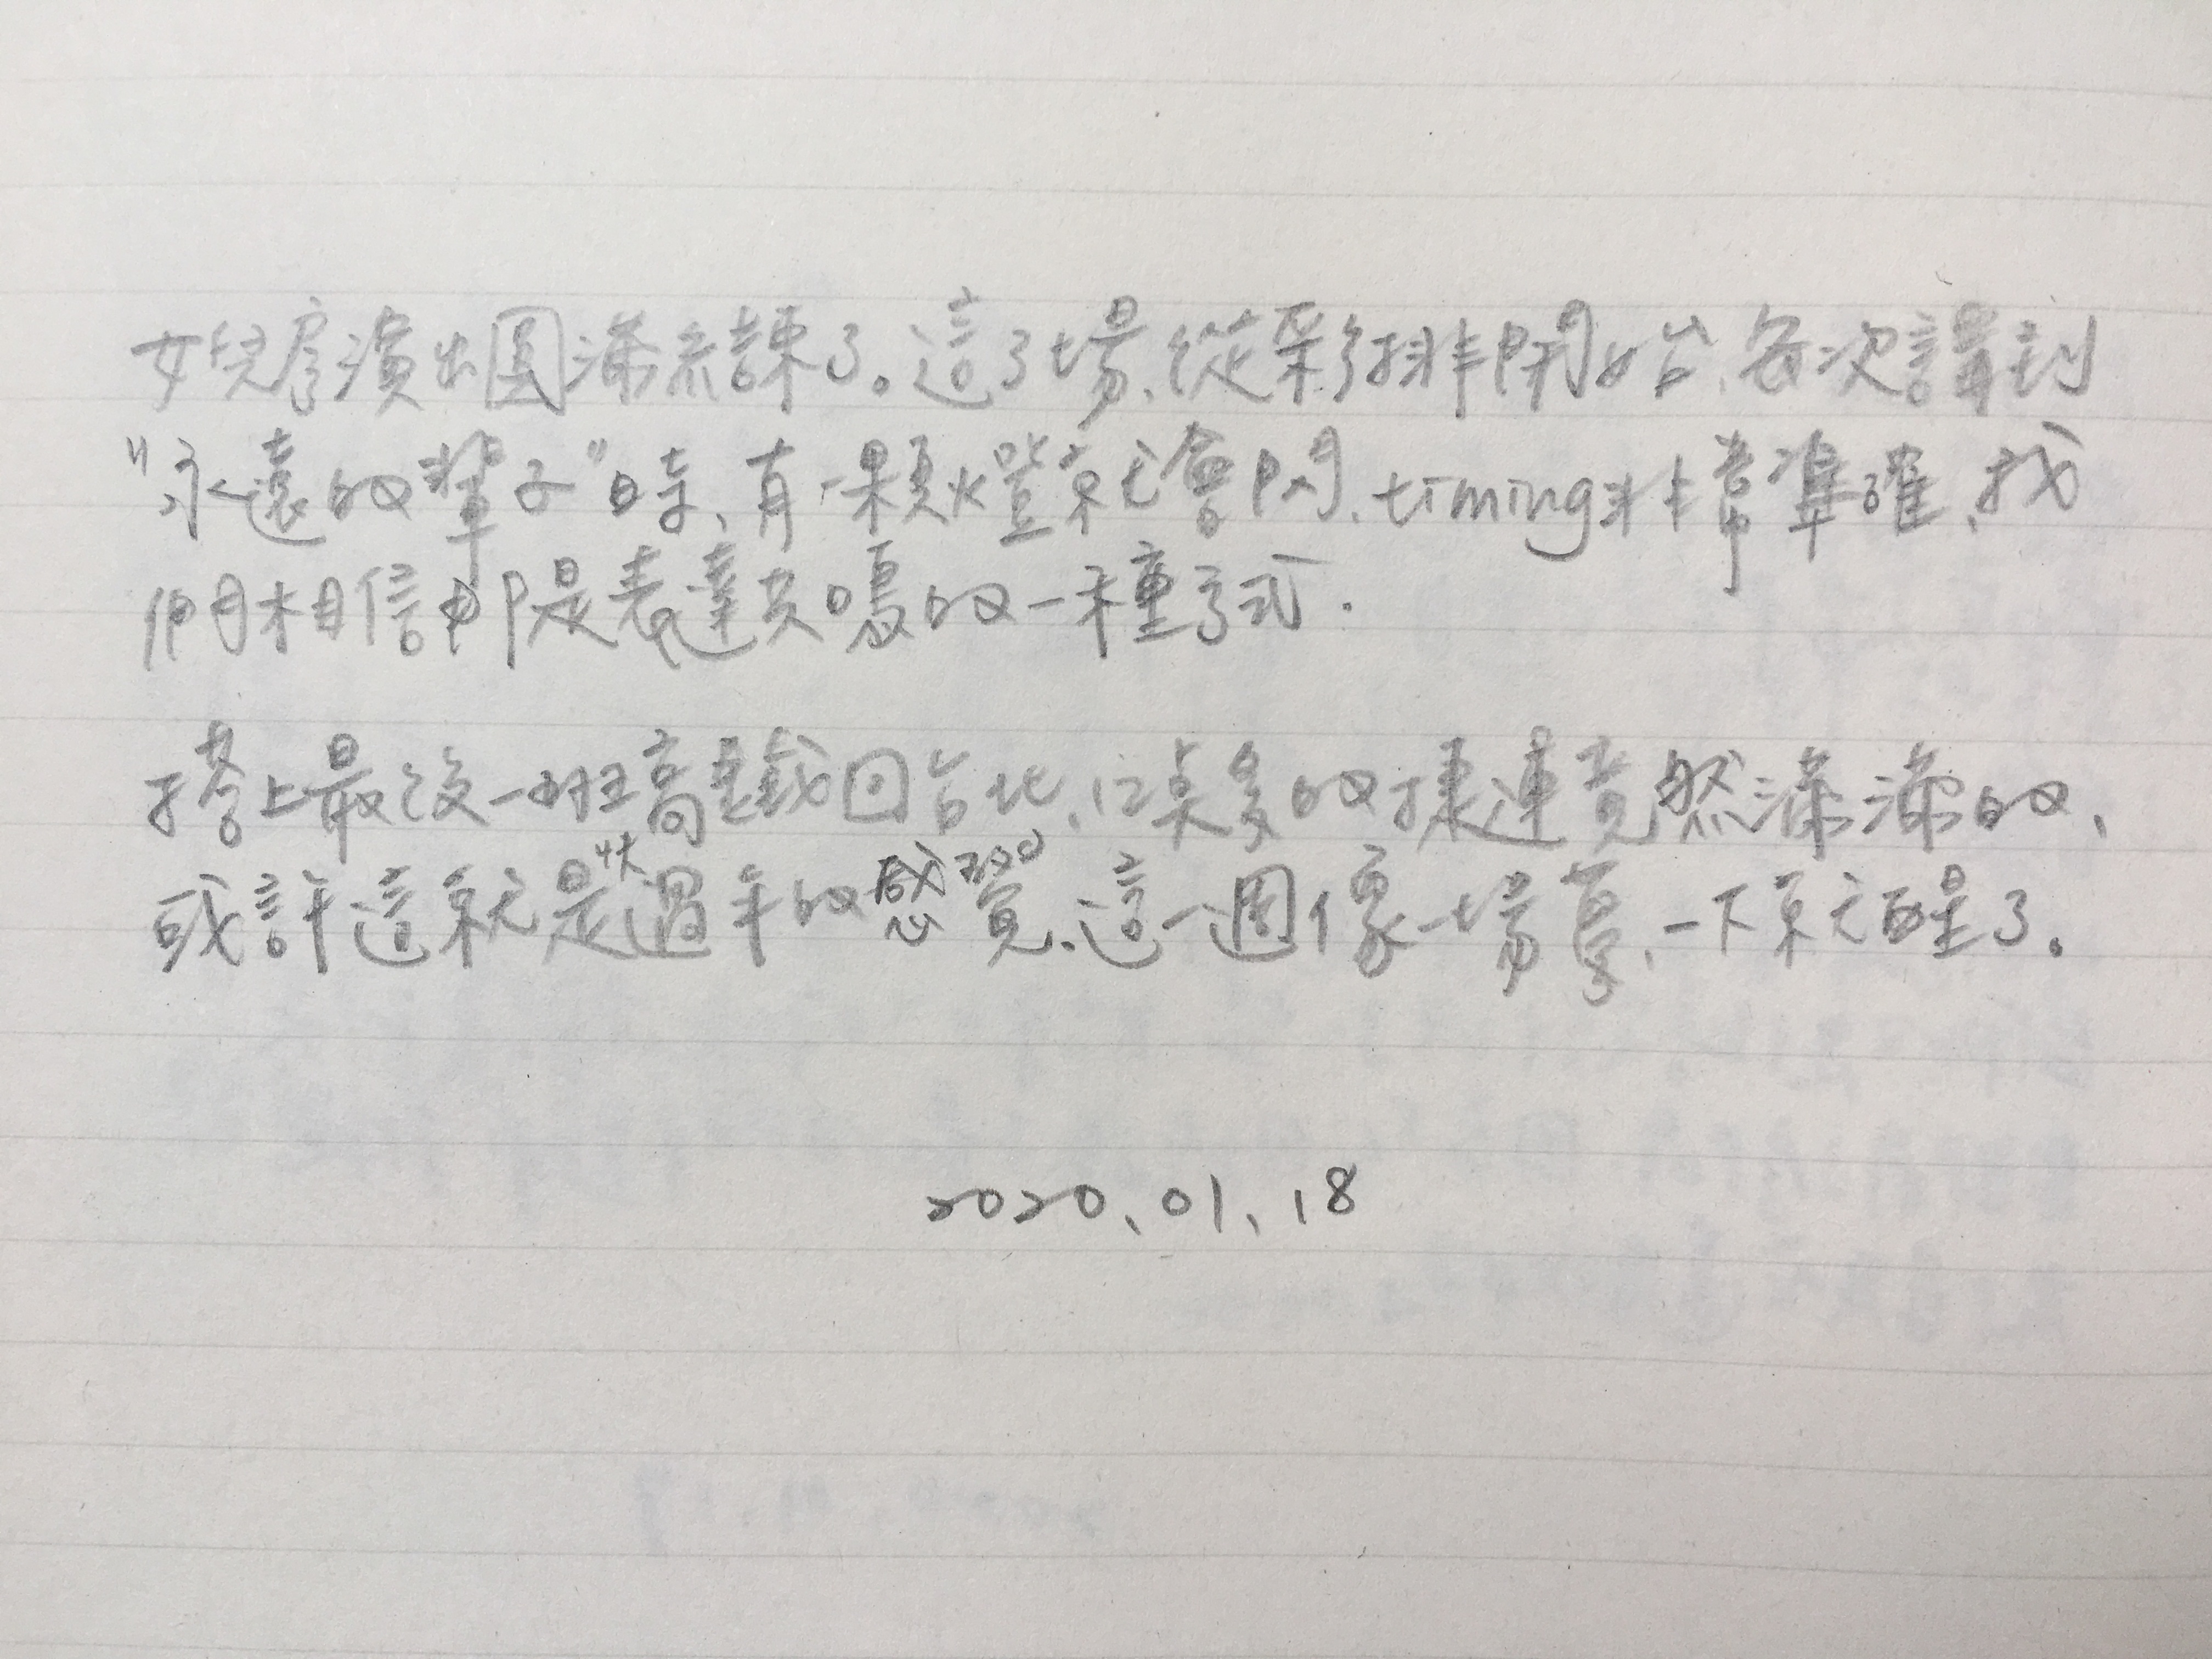 女兒房演出圓滿結束了。這了場、從彩排開始、每次講到
"永遠的輩子"時、有一顆燈就會閃、timing非常準確、我
們相信那是表達共鳴的一種方式.
搭上最後一班高鐵回台北、桌多的捷運竟然滿滿的、
或許這就是快過年的感覺、這一週像一場夢、一下就醒了。
2020、01、18